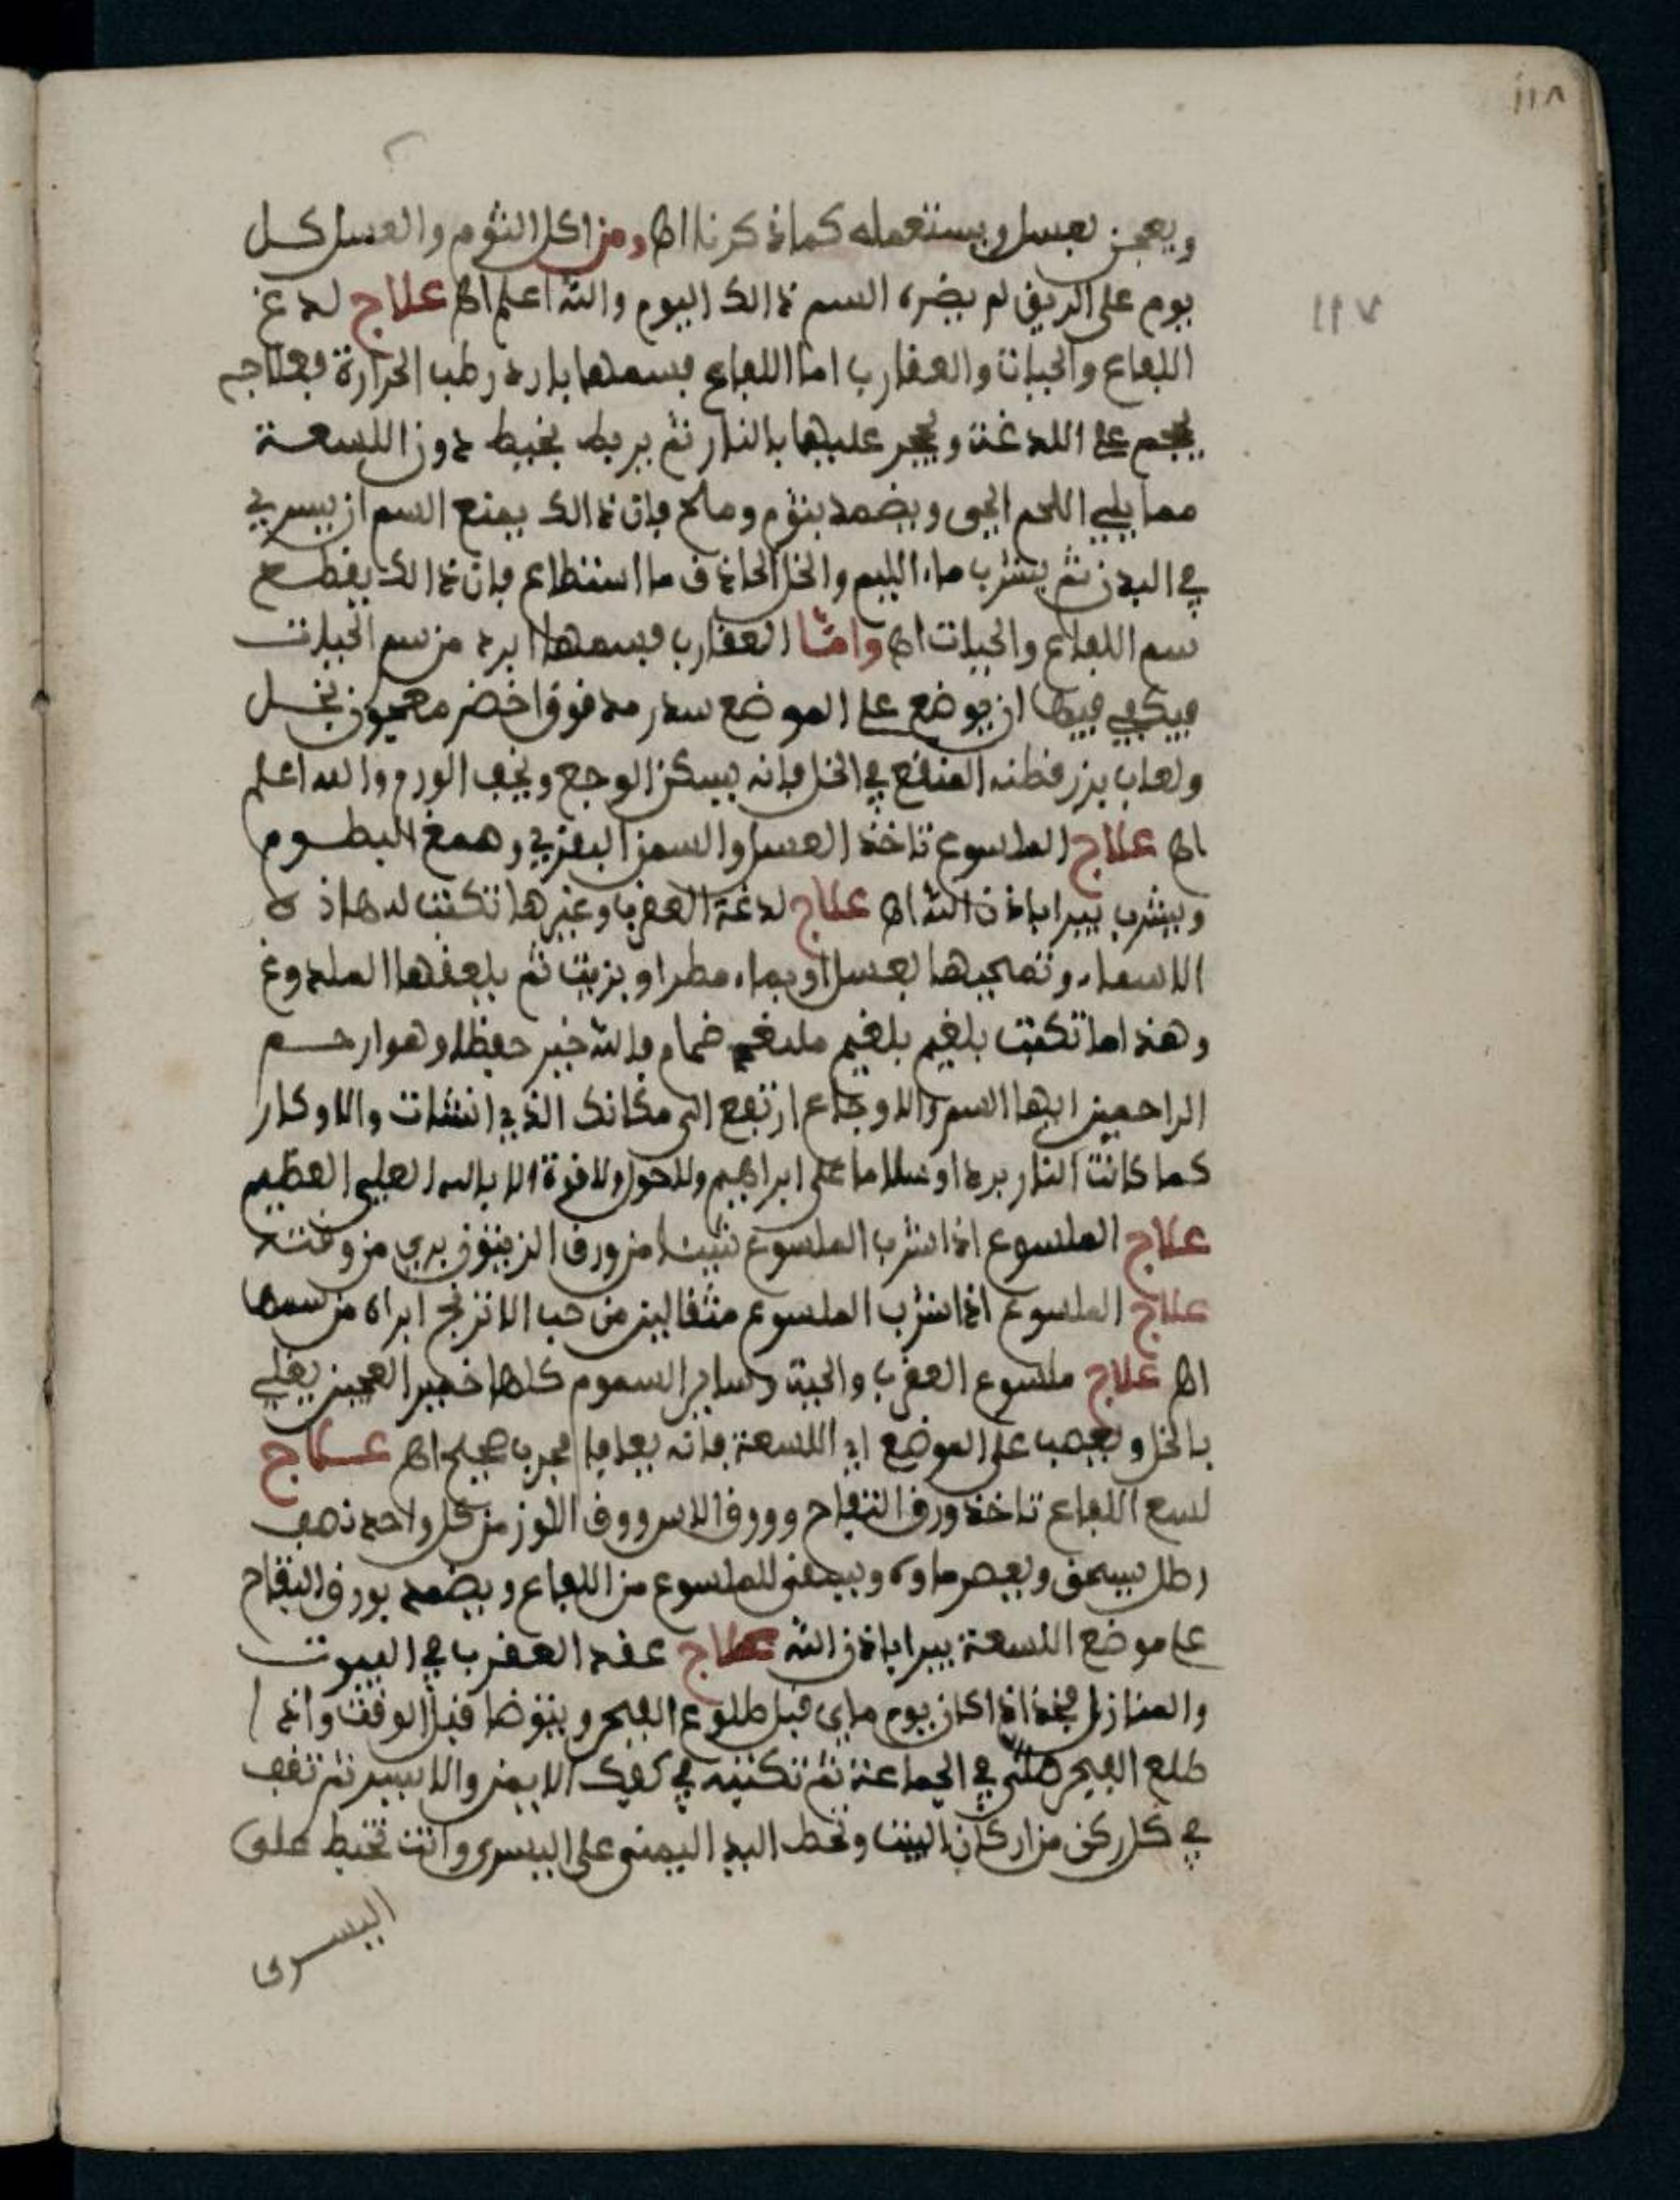 ١١٨
١١٧
ويعجن بعسل ويستعمله كما ذكرنا اه ومن اكل الثوم والعسل كل
يوم على الريق لم يضره السم ذالك اليوم والله اعلم اه علاج لدغ
اللفاع والحيات والعقارب اما اللفاع فسمها بارد رطب الحرارة فعلاجه
يحجم على اللدغة ويحجر عليها بالنار ثم يربط بخيط دون اللسعة
مما يلي اللحم الحي ويضمد بثوم وملح فان ذالك يمنع السم ان يسري
في البدن ثم يشرب ماء الليم والخل الحاذق ما استطاع فان ذالك يقطع
سم اللفاع والحيات اه وامّا العقارب فسمها ابرد من سم الحيات
فيكفي فيها ان يوضع على الموضع سدر مدقوق اخضر معجون بخل
ولعاب بزر قطنه المنقع في الخل فانه يسكن الوجع ويخف الورم والله اعلم
اه علاج الملسوع تاخذ العسل والسمن البقري وصمغ البطوم
ويشرب يبرا باذن الله اه علاج لدغة العقرب وغيرها تكتب له هاذه
الاسماء وتمحيها بعسل او بماء مطر او بزيت ثم يلعقها الملدوغ
وهذا ما تكتب بلغيم بلغيم ملبغم ضمام فالله خير حفظا وهو ارحم
الراحمين ايها السم والاوجاع ارتفع الى مكانك الذي انشات والاوكار
كما كانت النار بردا وسلاما على ابراهيم ولا حول ولا قوة الا بالله العلي العظيم
علاج الملسوع اذا شرب الملسوع شيئا من ورق الزيتون بري من وقته
علاج الملسوع اذا شرب الملسوع مثقالين من حب الاترنج ابراه من سمها
اه علاج ملسوع العقرب والحية وساير السموم كلها خمير العجين يغلي
بالخل ويعصب على الموضع اي اللسعة فانه يعافا مجرب صحيح اه علاج
لسع اللفاع تاخذ ورق التفاح وورق الاس وورق اللوز من كل واحد نصف
رطل يسحق ويعصر ماوه ويسقى للملسوع من اللفاع ويضمد بورق التفاح
على موضع اللسعة يبرا باذن الله علاج عقد العقرب في البيوت
والمنازل فخذ اذا كان يوم ماي قبل طلوع الفجر ويتوضا قبل الوقت واذا
طلع الفجر صلى في الجماعة ثم تكتبه في كفيك الايمن والايسر ثم تقف
في كل ركن من اركان البيت وتحط اليد اليمنى على اليسرى وانت تخبط على
اليسرى